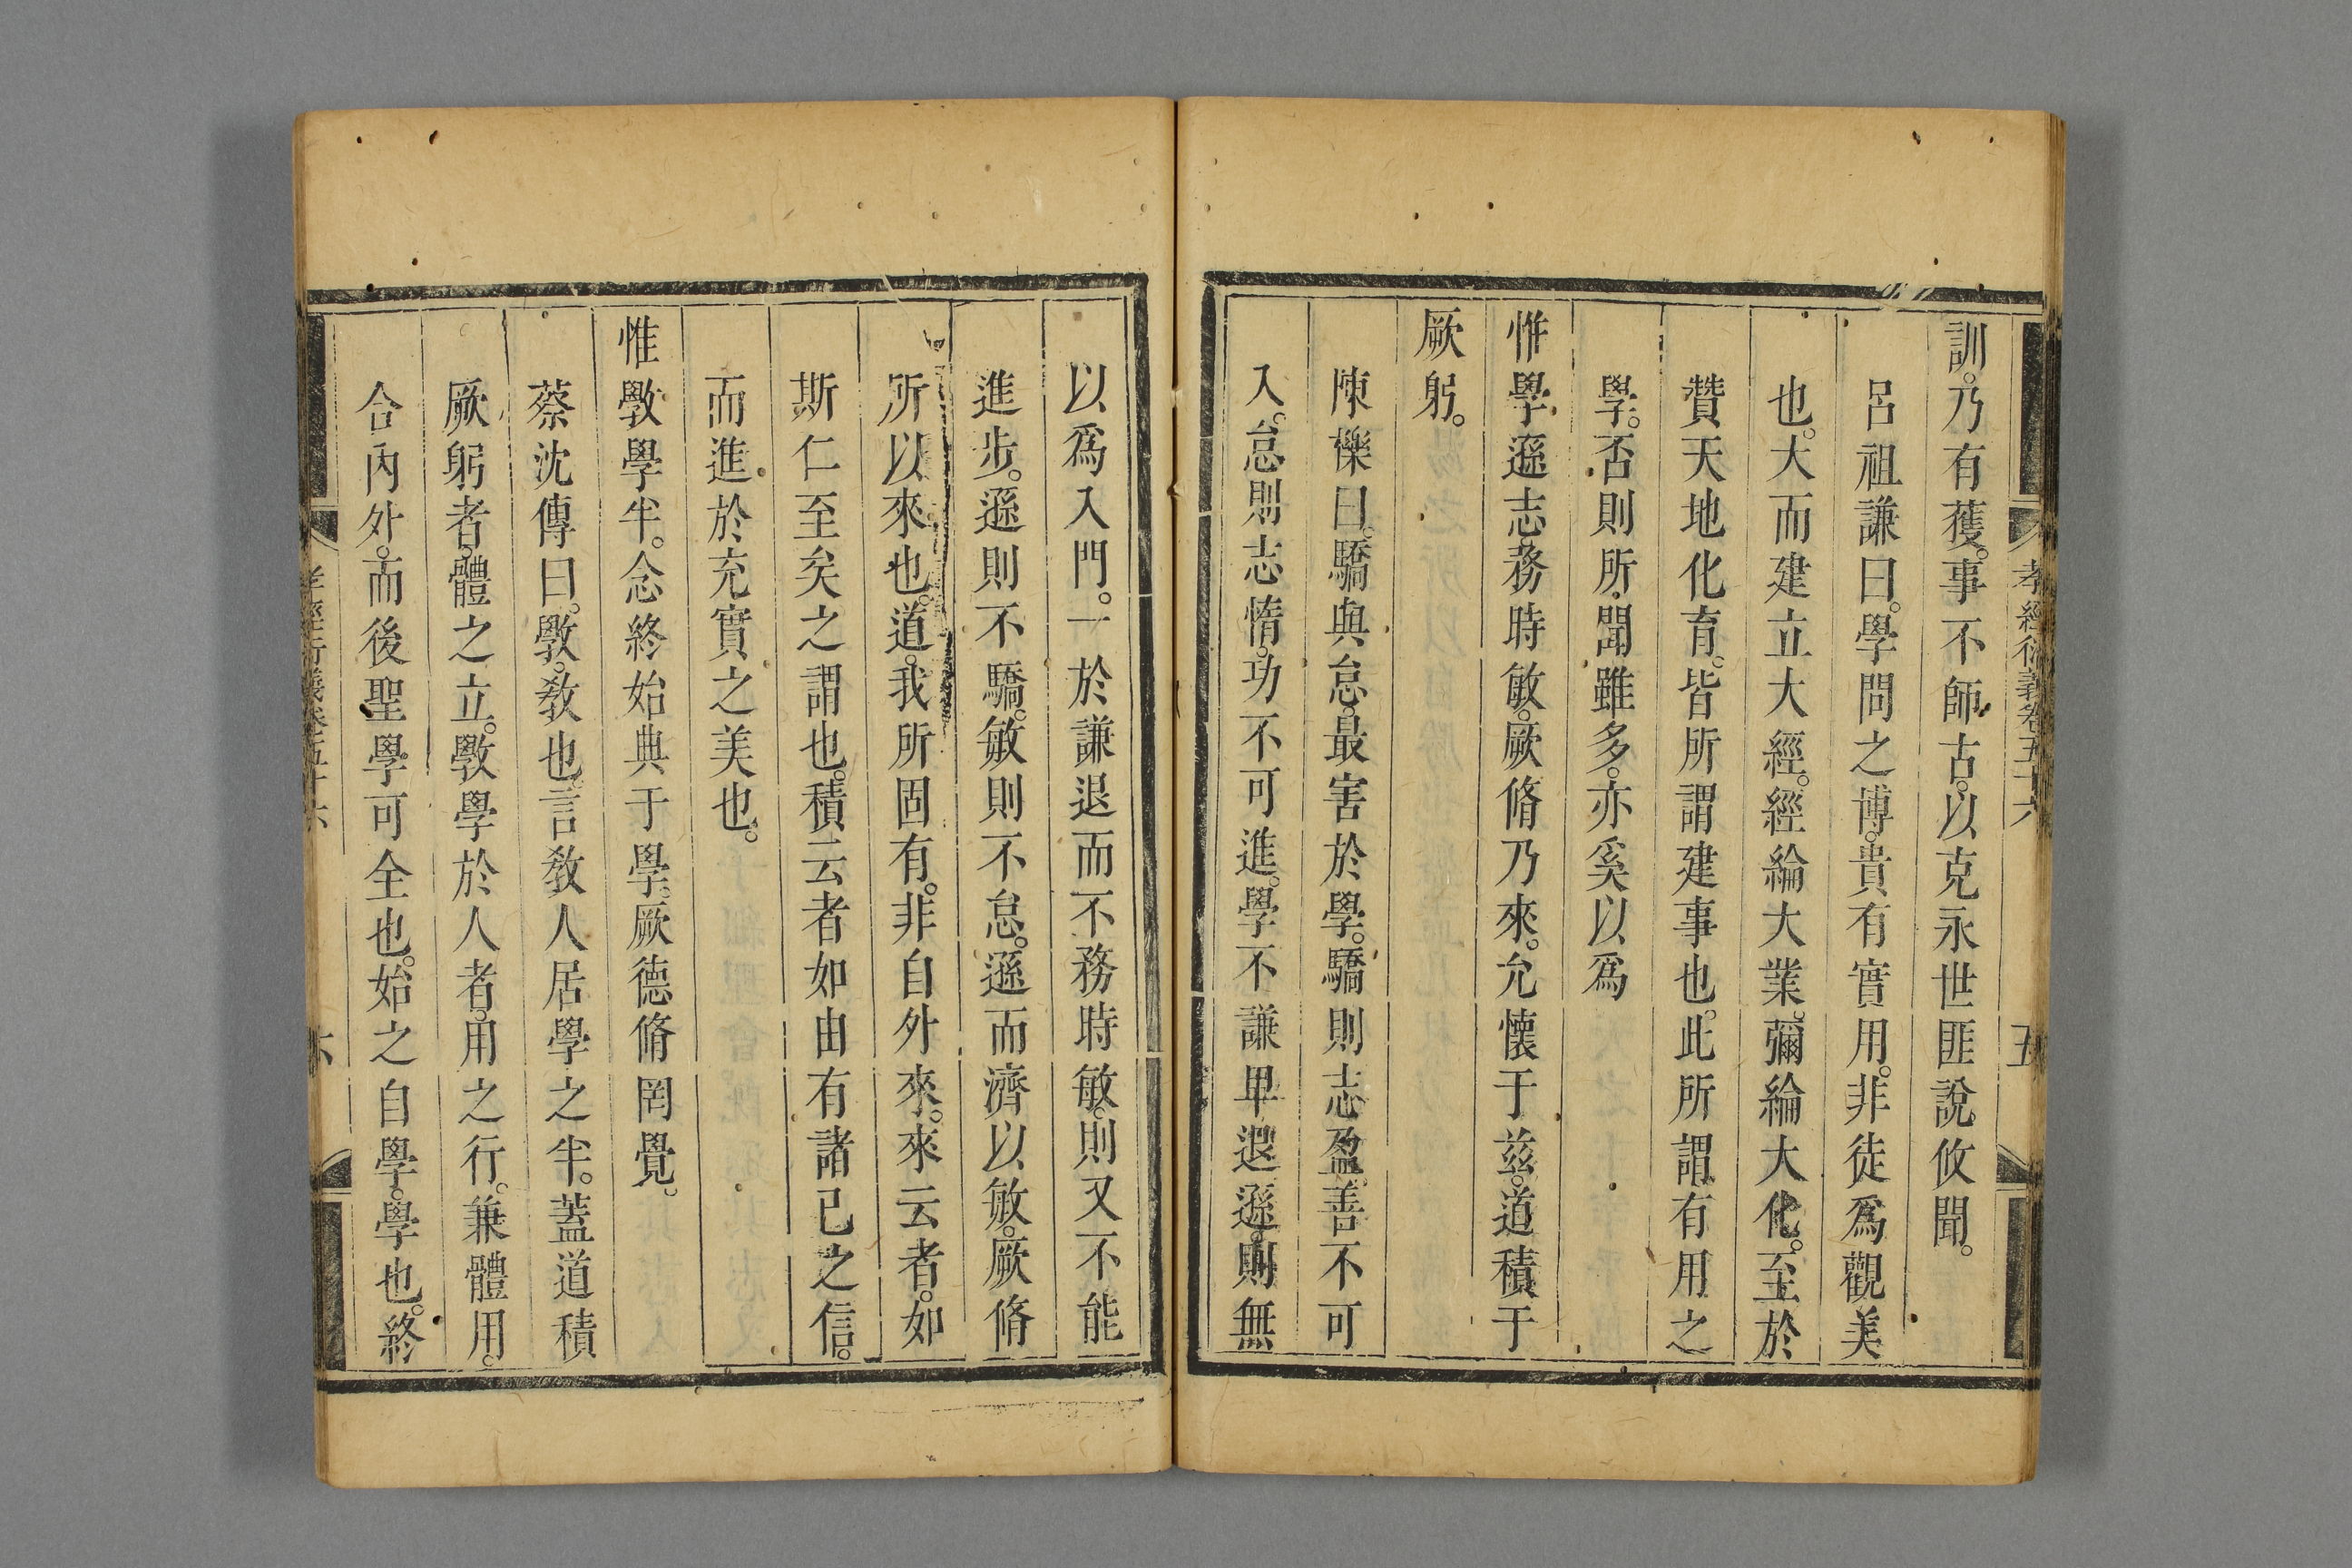 孝經衍義卷五十六　五
訓。乃有獲。事不師古。以克永世匪說攸聞。
呂祖謙曰。學問之博。貴有實用。非徒爲觀美
也。大而建立大經。經綸大業。彌綸大化。至於
贊天地化育。皆所謂建事也。此所謂有用之
學。否則所聞雖多。亦奚以爲
惟學遜志。務時敏。厥脩乃來。允懷于茲。道積于
厥躬。
陳櫟曰。驕與怠。最害於學。驕則志盈。善不可
入。怠則志惰。功不可進。學不謙卑退遜。則無
以爲入門。一於謙退而不務時敏。則又不能
進步。遜則不驕。敏則不怠。遜而濟以敏。厥脩
所以來也。道。我所固有。非自外來。來云者。如
斯仁至矣之謂也。積云者如由有諸己之信。
而進於充實之美也。
惟斆學半。念終始典于學。厥德脩罔覺。
蔡沈傳曰。斆。敎也。言敎人居學之半。蓋道積
厥躬者。體之立。斆學於人者。用之行。兼體用。
合內外。而後聖學可全也。始之自學。學也。終
孝經衍義卷五十六　六